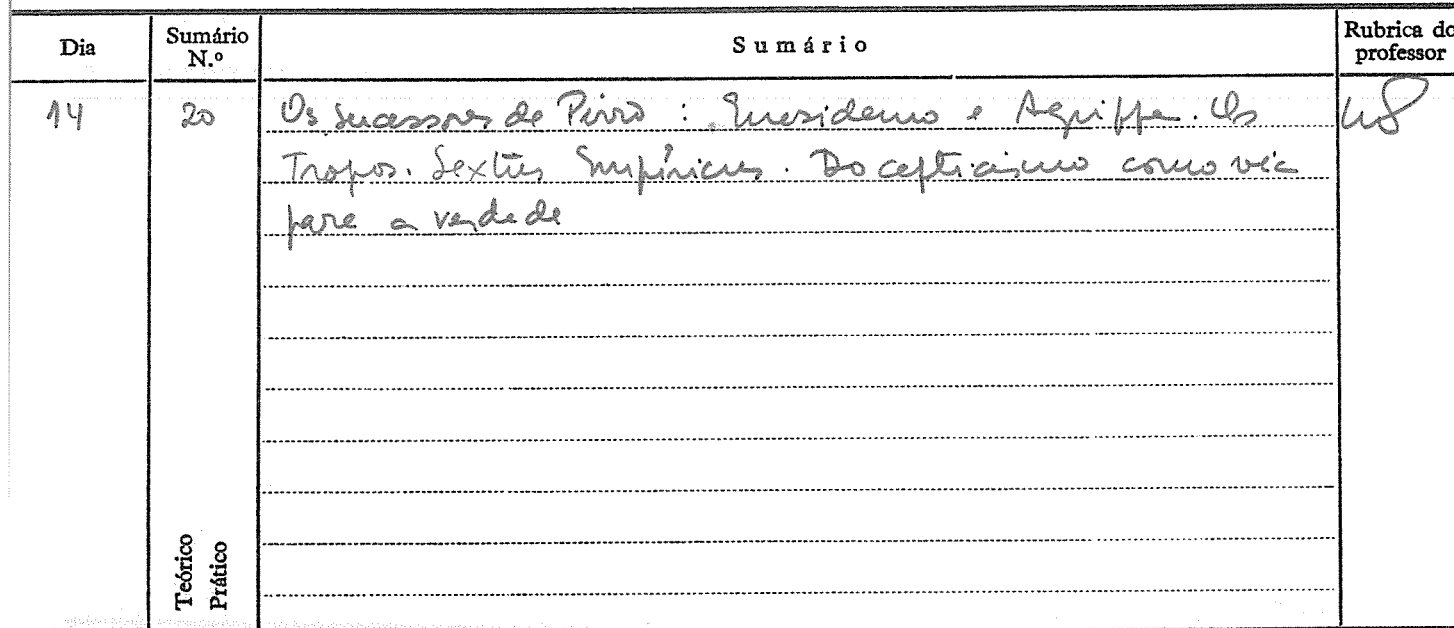 Dia
Sumário N.º
Sumário
Rubrica do professor
14
20
Os sucessores de Pirro : Enesidemo e Agrippa. Os
Tropos. Sextus Empiricus. Do cepticismo como via
para a verdade
Teórico
Prático